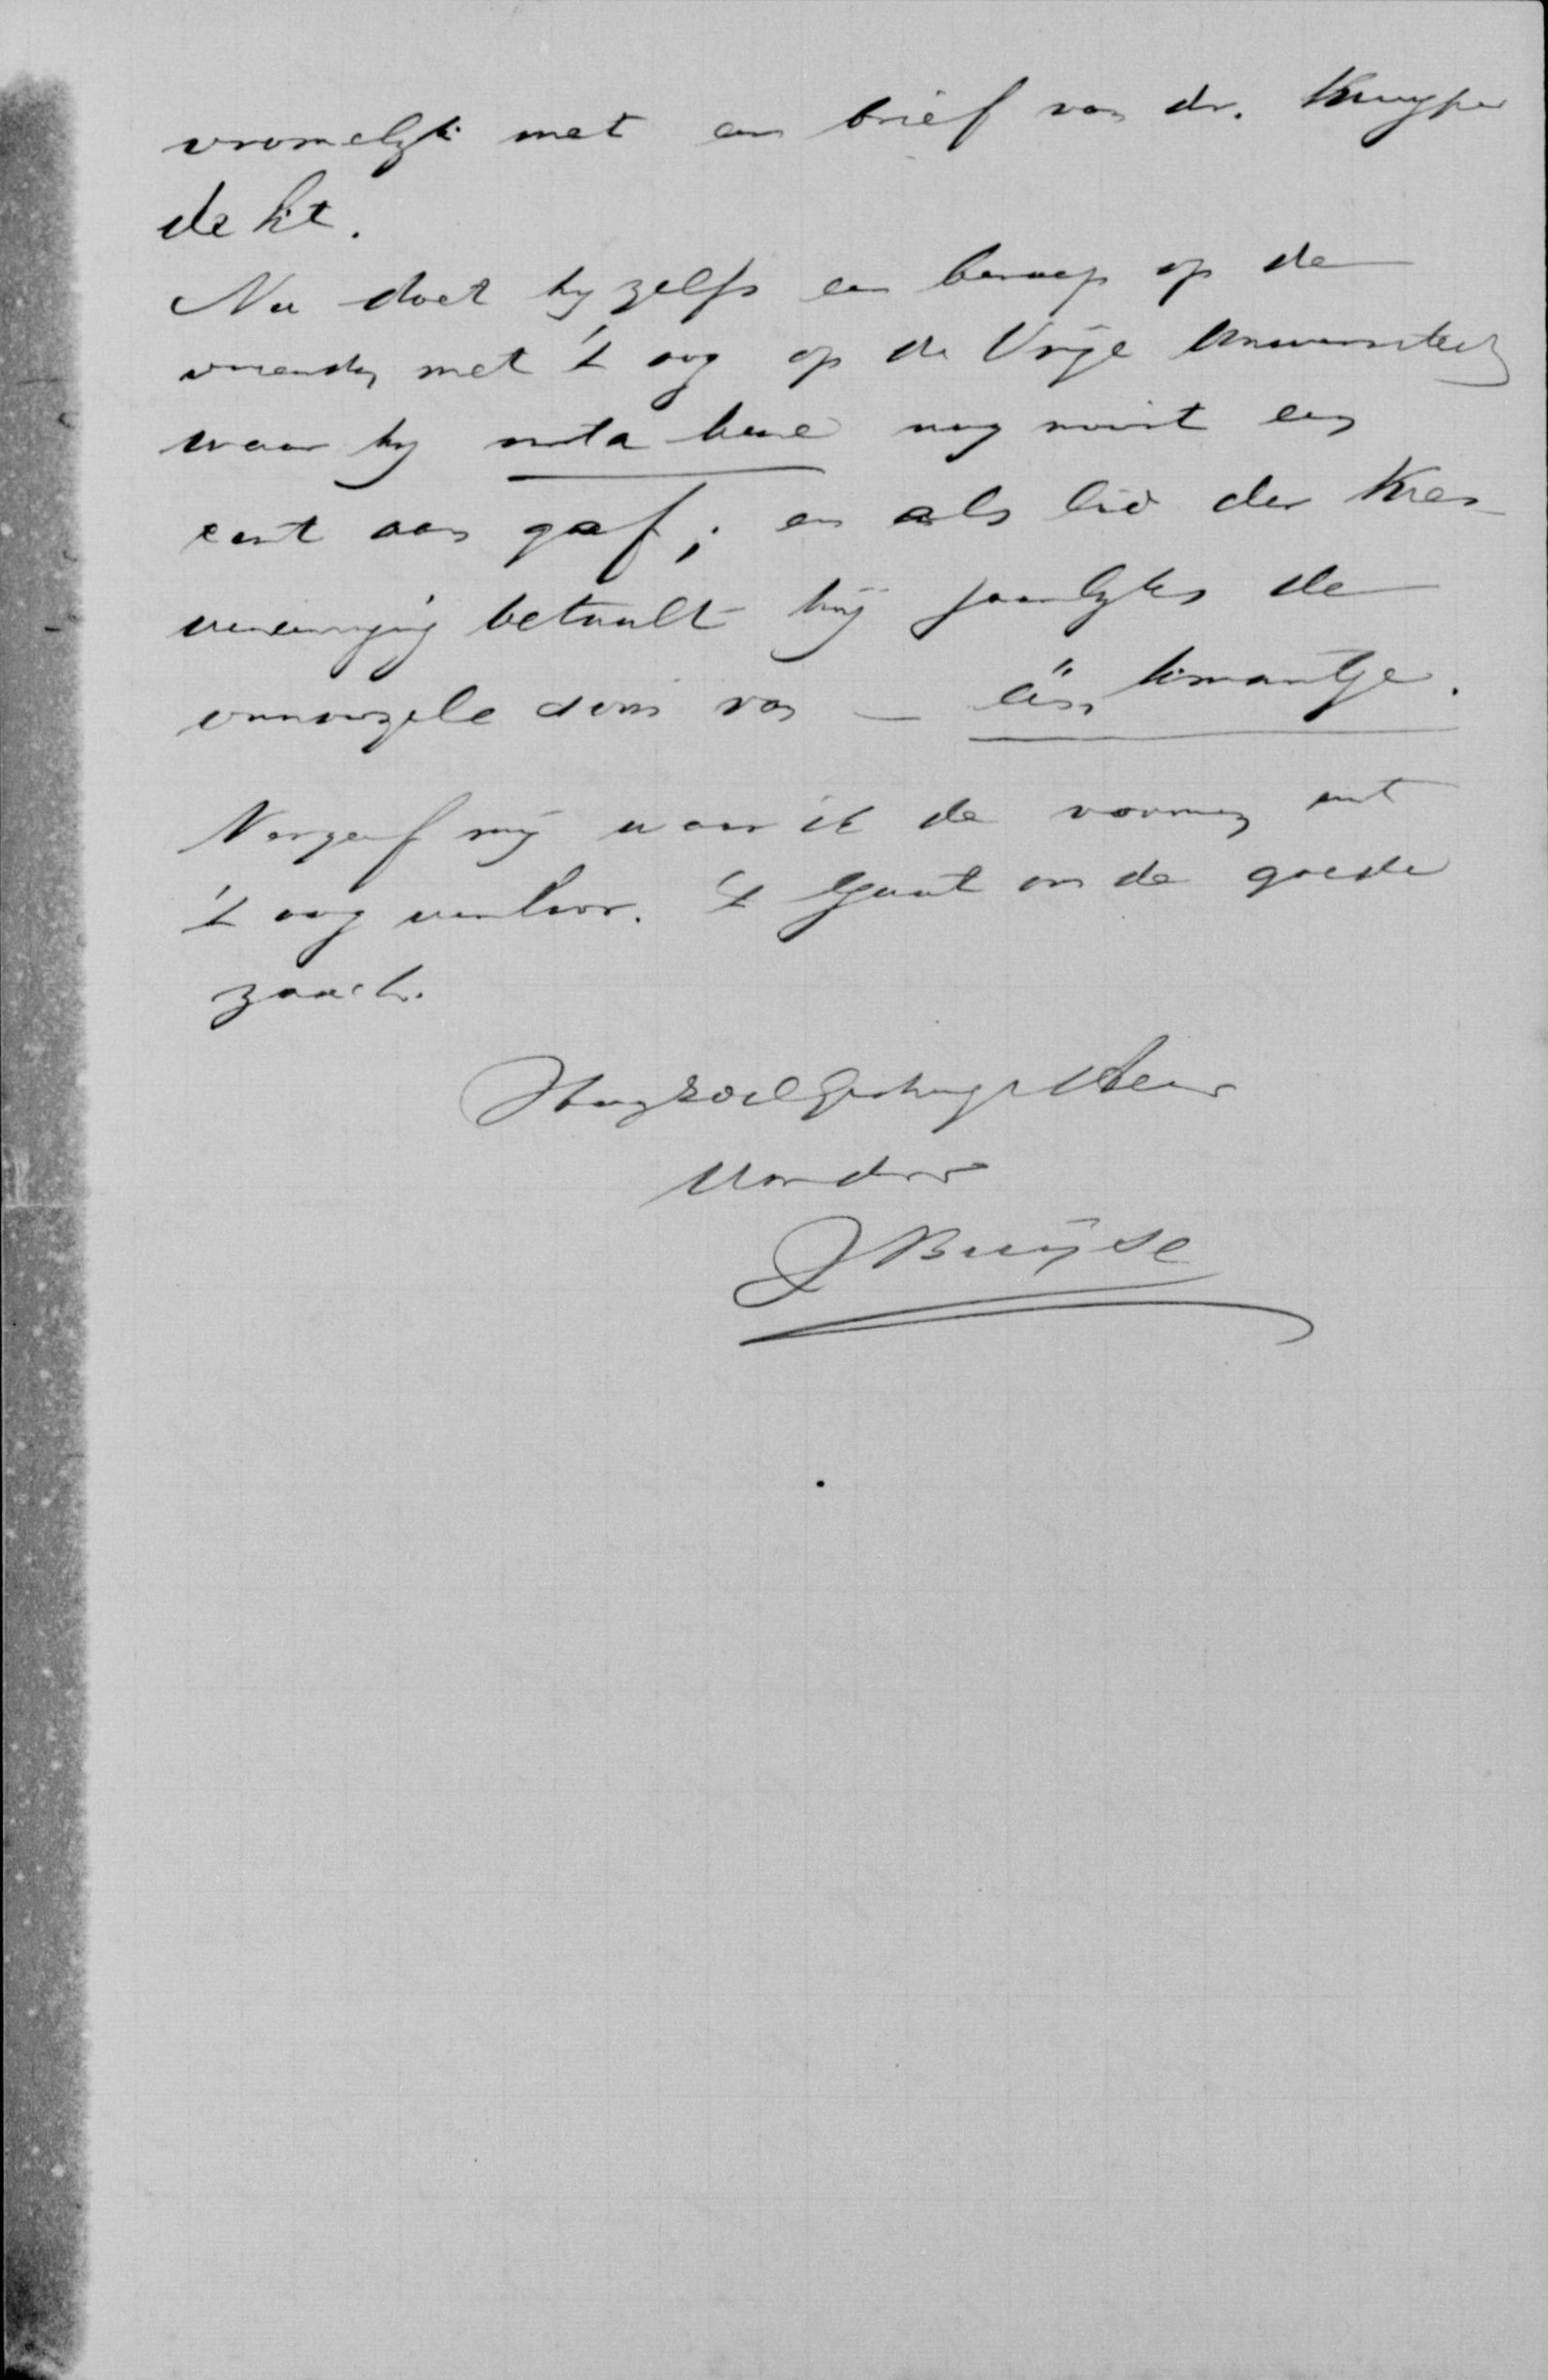 vromelijk met een brief van dr. Kuyper
dekt.
Nu doet hy zelfs een beroep op de
vrienden met 't oog op de Vrije Universiteit
waar hy nota bene nog nooit een
cent aan gaf; en als lid der Kies-
vereeniging betaalt hij jaarlyks de
onnoozele som van — één kwartje.
Vergeef mij waar ik de vormen uit
't oog verloor. 't Gaat om de goede
zaak.
Hoogedelgestrenge Heer
Uw dr
JBuijse